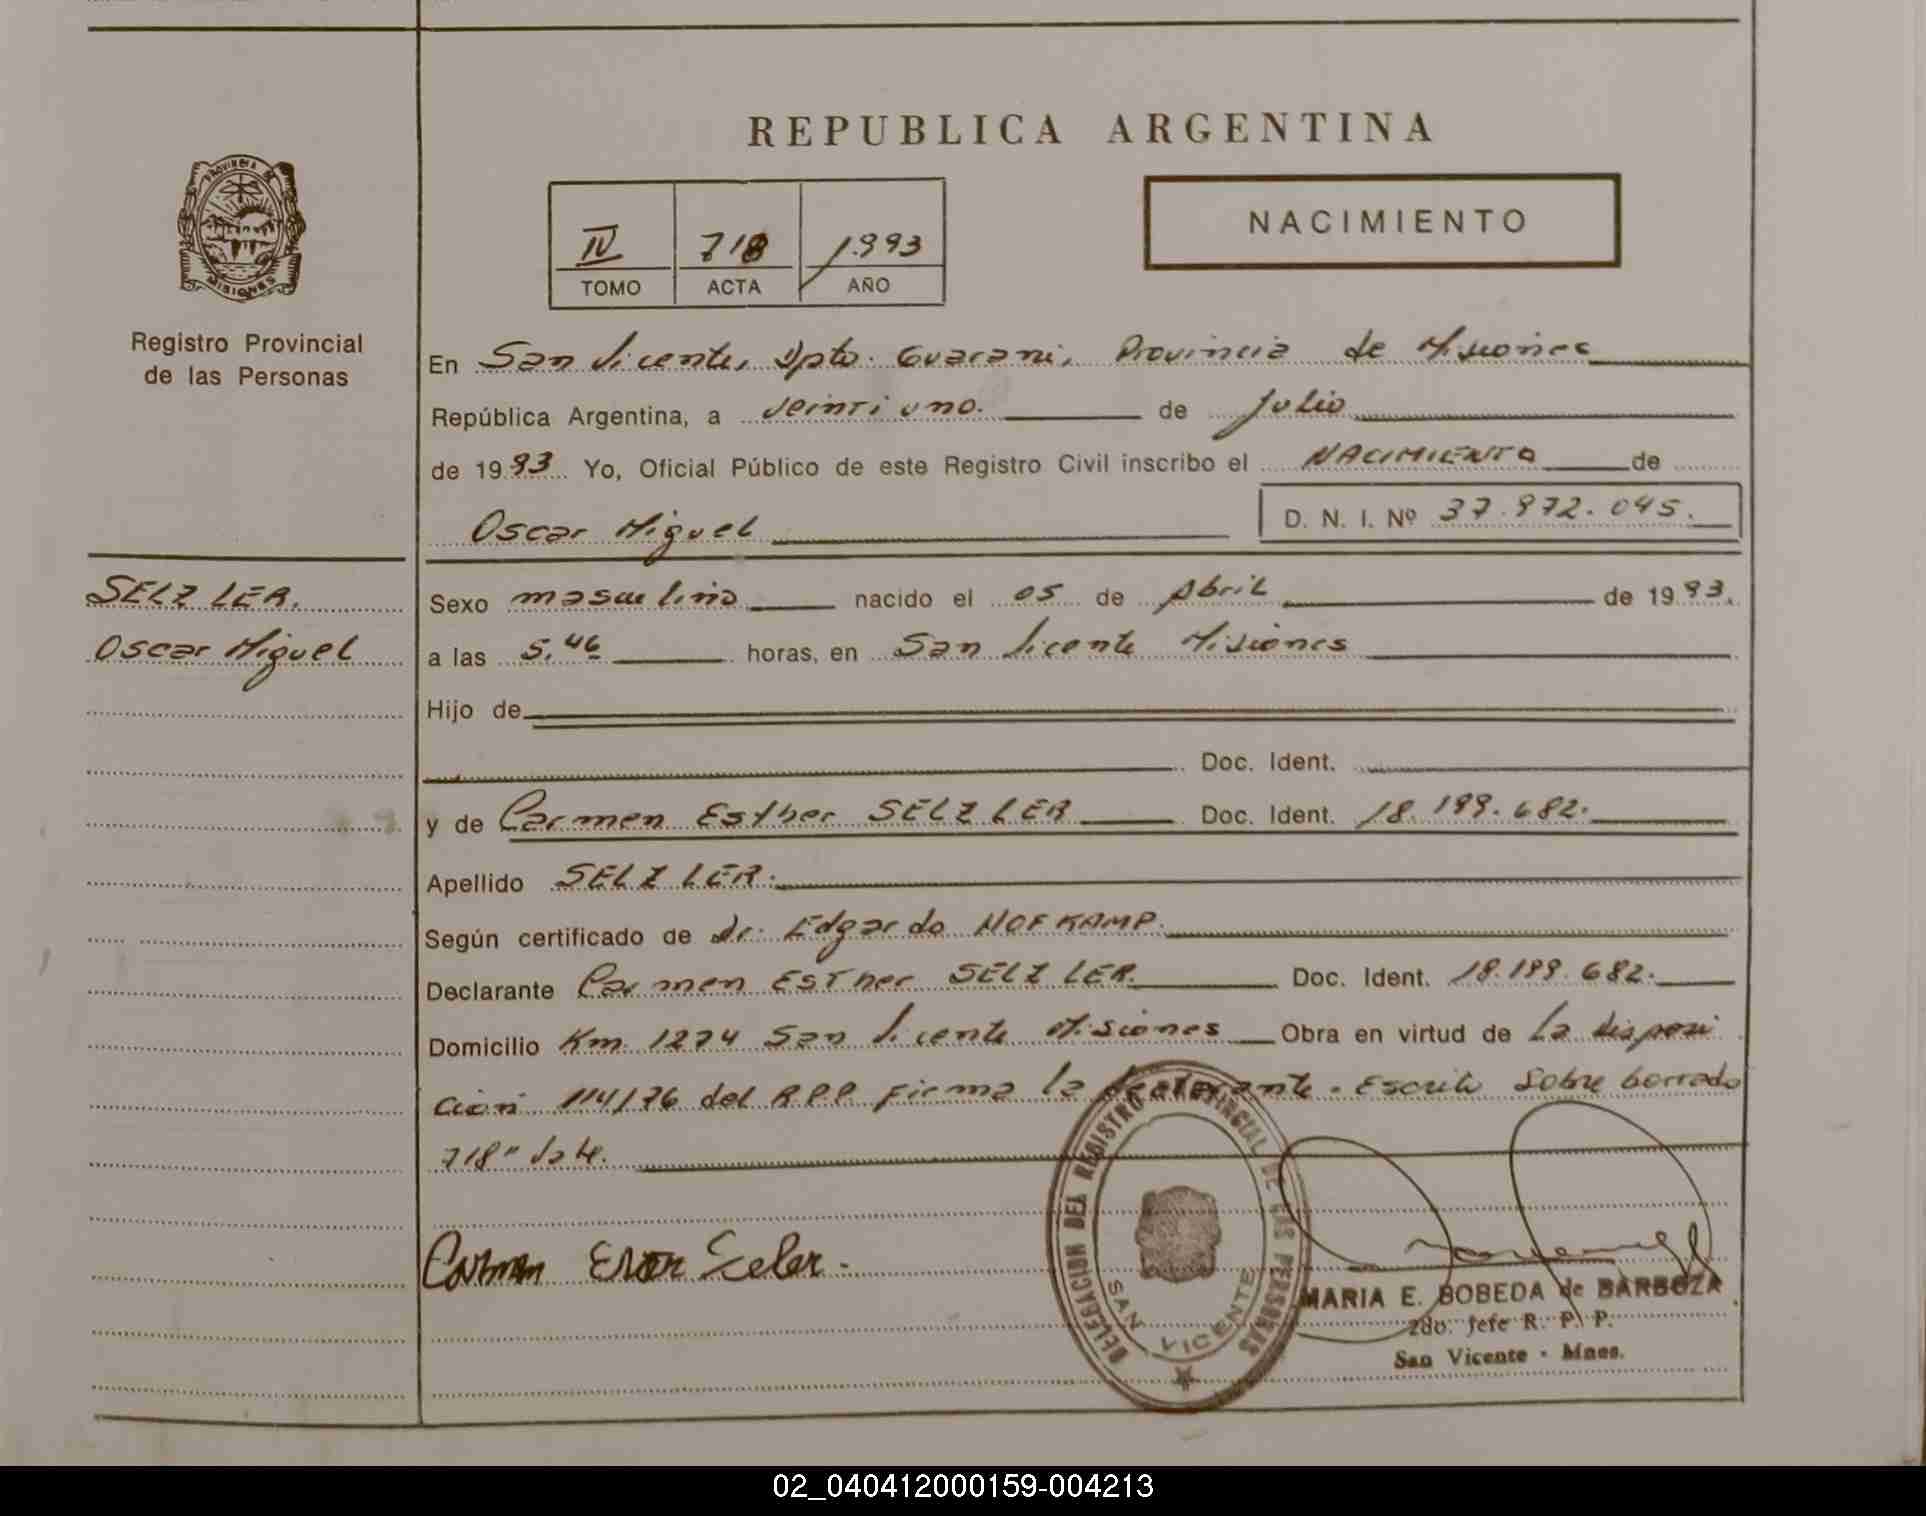 REPUBLICA ARGENTINA
PROVINCIA DE
MISIONES
Registro Provincial
de las Personas
NACIMIENTO
IV 718 1.993
TOMO ACTA AÑO
En San Vicente, Dpto. Guarani, Provincia de Misiones
República Argentina, a Veinti uno. de Julio
de 19 93 Yo, Oficial Público de este Registro Civil inscribo el NACIMIENTO de
Oscar Miguel D. N. I. Nº 37.972.045.
SELZLER.
Oscar Miguel
Sexo masculino nacido el 05 de Abril de 19 93.
a las 5,46 horas, en San Vicente Misiones
Hijo de
Doc. Ident.
y de Carmen Esther SELZLER Doc. Ident. 18.199.682.
Apellido SELZLER.
Según certificado de Dr. Edgardo HOFKAMP.
Declarante Carmen Esther SELZLER. Doc. Ident. 18.199.682.
Domicilio Km. 1274 San Vicente Misiones Obra en virtud de La disposi
ción 114/76 del RPP Firma la declarante. Escrito sobre borrado
718" Vale.
Carmen Selser.
DELEGACION DEL REGISTRO PROVINCIAL DE LAS PERSONAS
SAN VICENTE
MARIA E. BOBEDA de BARBOZA
2do. Jefe R. P. P.
San Vicente - Mnes.
02_040412000159-004213